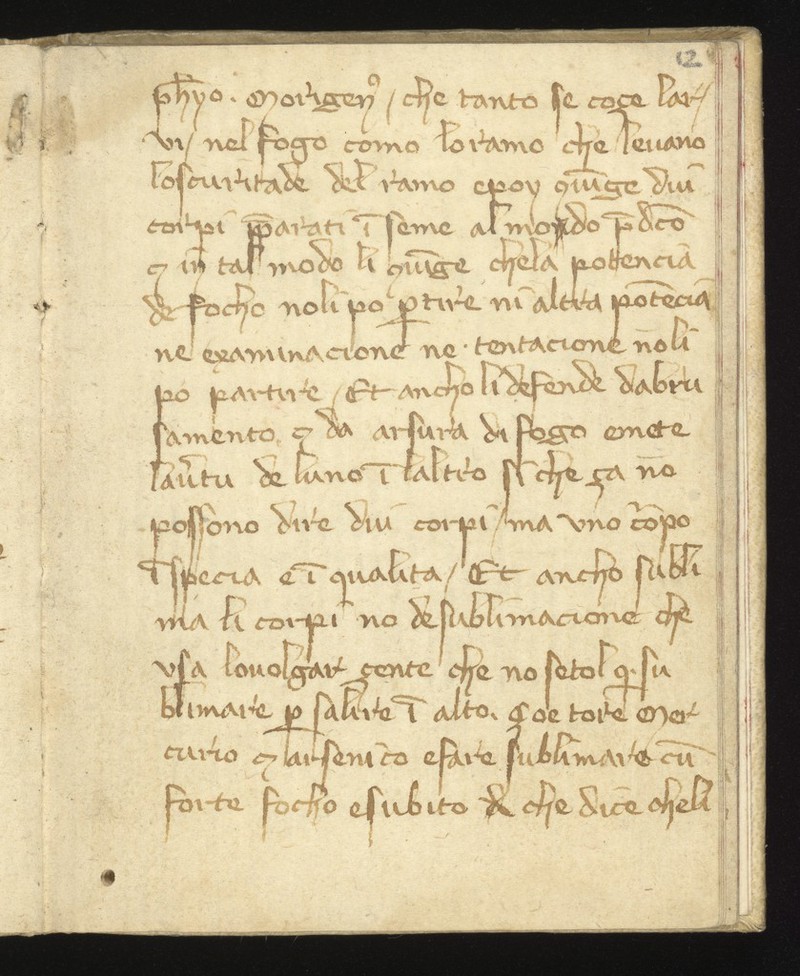 12
ph̄yo. Morigenꝰ / che tanto se coçe lar
vi / nel fogo como loramo che levano
loscuritade del ramo epoy 9iūge dui
corpi p̄parati ī seme al mondo p̄dc̄o
⁊ in tal modo li 9iūge chela potencia
de focho noli po ꝑtire ni altra potēcia
ne examinacione ne tentacione nōli
po partire / Et ancho li defende dabru
samento ⁊ da arsura di fogo emete
de luno ī laltro si che ça nō
possono dire dui corpi / ma uno corpo
ī specia e ī qualita / Et ancho subli
ma li corpi no de sublimacione che
usa lovolgar gente che no setol su
blimare ꝑ salire ī alto. çoe tore Mer
curio ⁊ arsenico efare sublimare cū
forte focho esubito che dice cheli